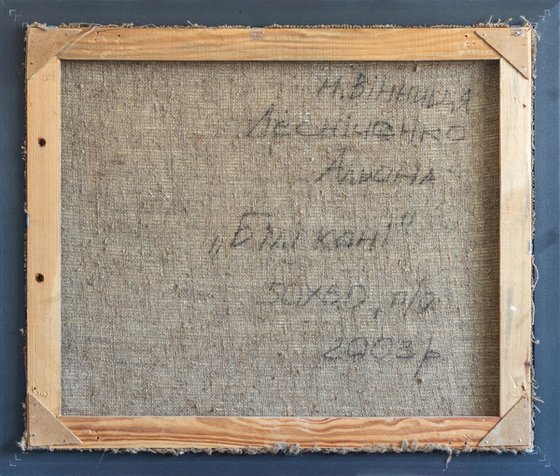 м. Вінниця
Лєсніченко
Альона
„Білі коні"
50х60, п/о
2003 р